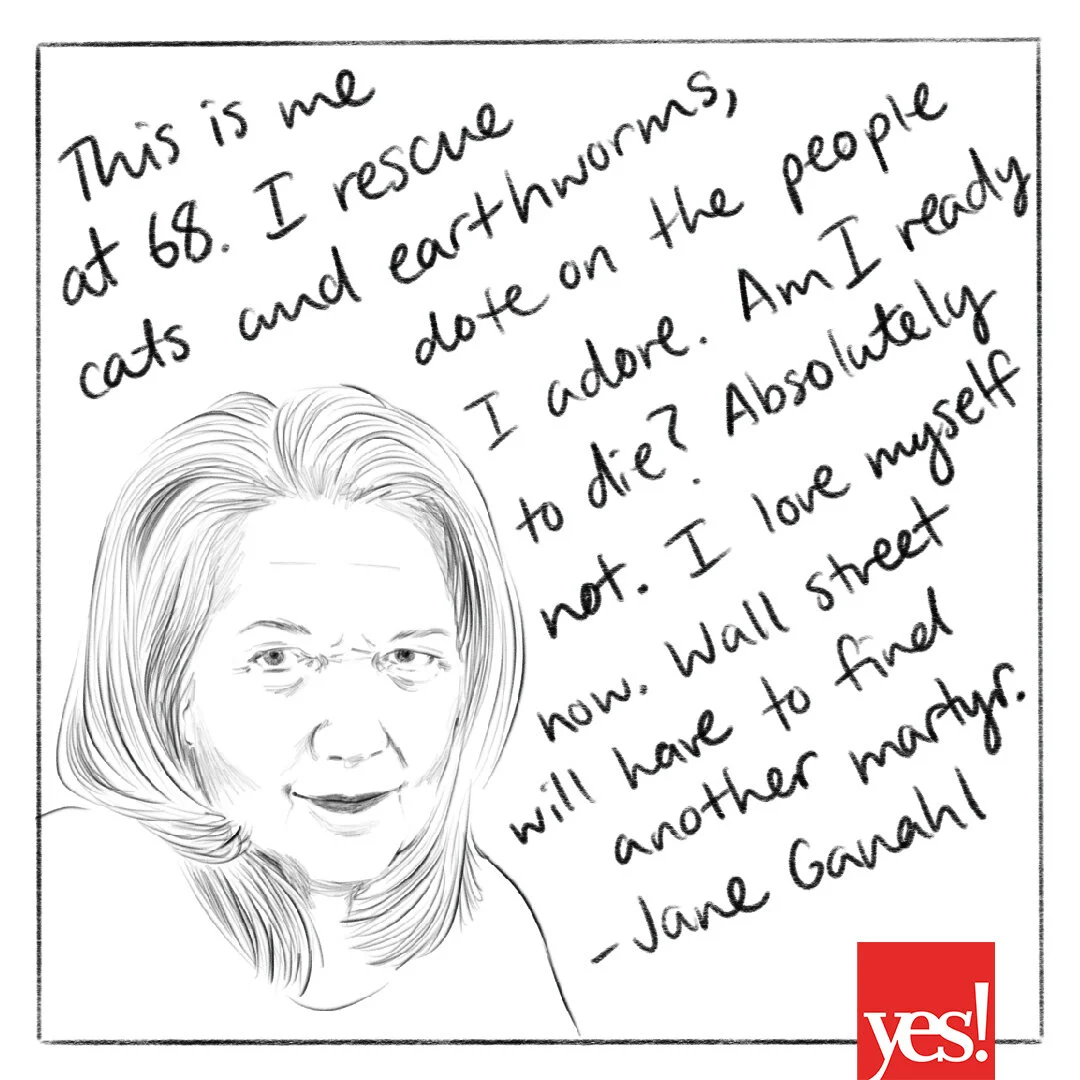 This is me
at 68. I rescue
cats and earthworms,
dote on the people
I adore. Am I ready
to die? Absolutely
not. I love myself
now. Wall street
will have to find
another martyr.
-Jane Ganahl
yes!